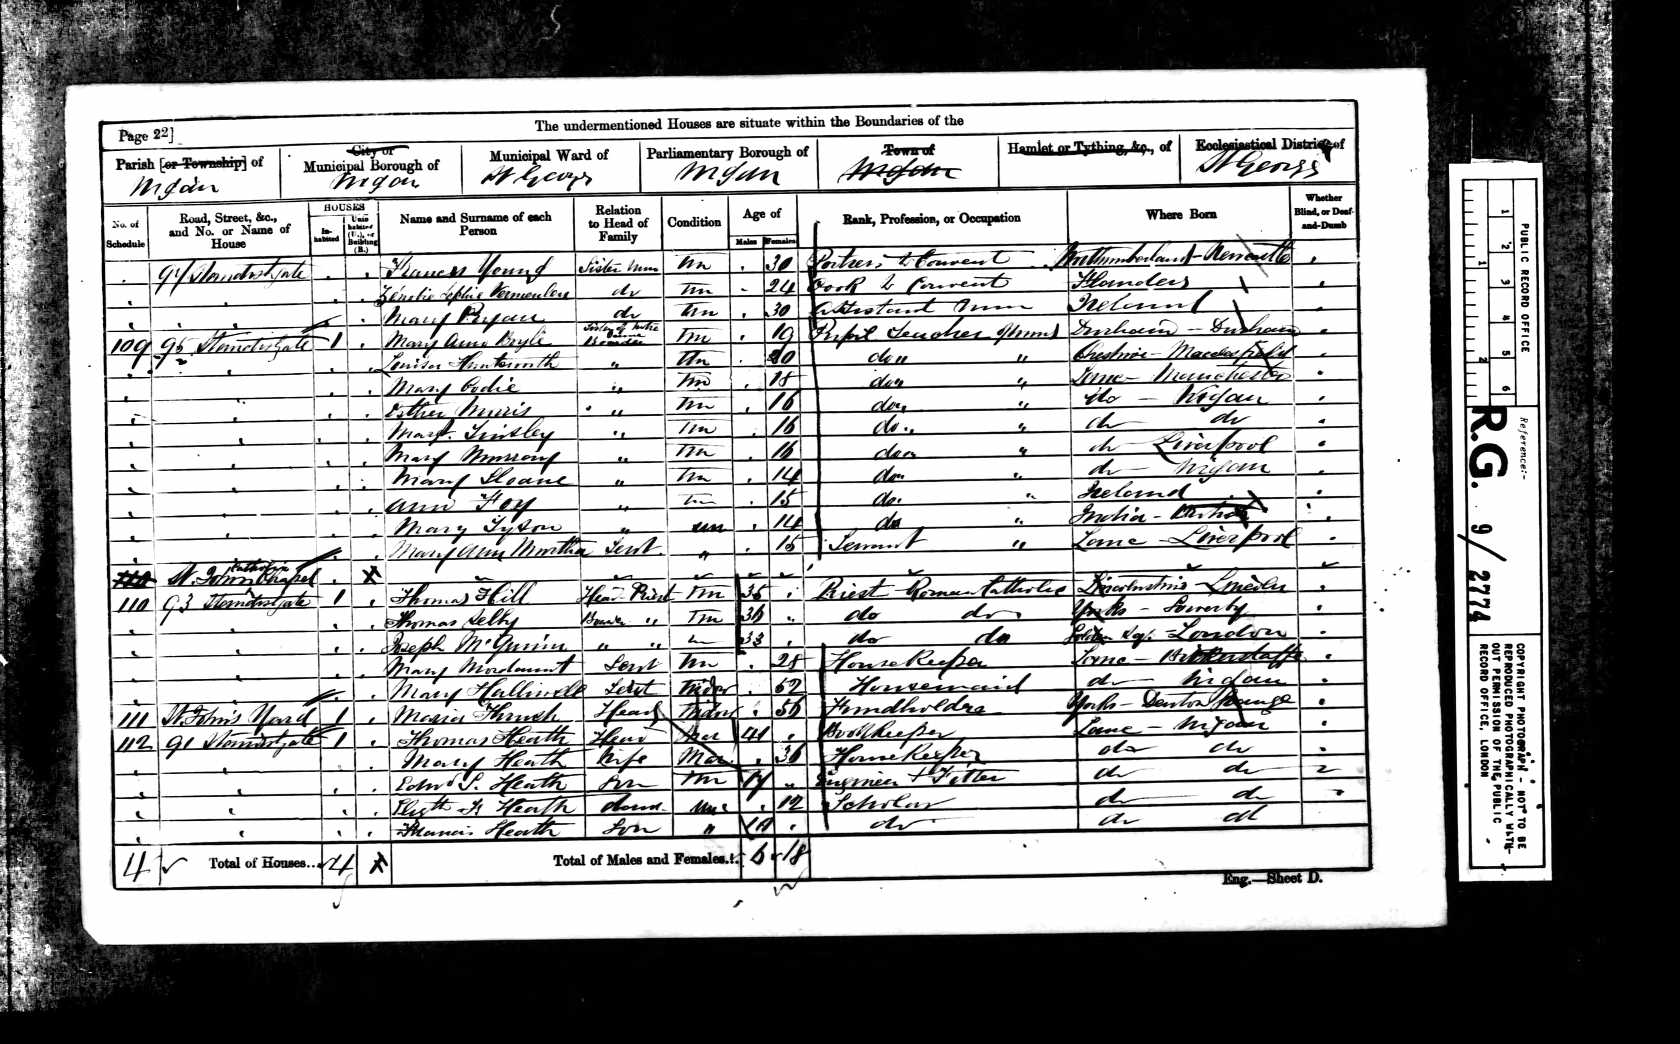 Page 22]
The undermentioned Houses are situate within the Boundaries of the
Parish [or Township] of
Wigan
City or
Municipal Borough of
Wigan
Municipal Ward of
St George
Parliamentary Borough of
Wigan
Town of
Wigan
Hamlet or Tything, &c., of
Ecclesiastical District of
St George
No. of Schedule
Road, Street, &c., and No. or Name of House
HOUSES
In-habited
Unin-habited (U.), or Building (B.)
Name and Surname of each Person
Relation to Head of Family
Condition
Age of
Males
Females
Rank, Profession, or Occupation
Where Born
Whether Blind, or Deaf-and-Dumb
97 Standishgate Frances Young Sister Nun Un 30 Portress to Convent Northumberland - Newcastle
Sophie Vermeulen do Un 24 Cook to Convent Flanders
Mary Ryan do Un 30 Assistant Nun Ireland
109 95 Standishgate 1 Mary Ann Boarder Un 19 Pupil Teacher Durham - Durham
Louisa Un 20 do " " Cheshire - Macclesfield
Mary " Un 18 do " " Lanc - Manchester
Esther " Un 16 do " " do - Wigan
Margt. Tinsley " Un 16 do " " do do
Mary " Un 16 do " " do Liverpool
Mary Sloane " Un 14 do " " do - Wigan
Ann Foy " Un 15 do " Ireland
Mary Tyson " Un 14 do " India -
Mary Ann Servt " 15 Servant " Lanc - Liverpool
St. John Catholic Chapel
110 93 Standishgate 1 Thomas Hill Head Priest Un 35 Priest Roman Catholic Lincolnshire - Lincoln
Thomas Selby " Un 36 do do Yorks - Sowerby
Joseph McGuinn " " 33 do do London
Mary Mordaunt Servt Un 28 House Keeper Lanc - Bickerstaffe
Mary Halliwell Servt Widow 52 Housemaid do Wigan
111 St John's Yard 1 Maria Head Widow 56 Fundholder Yorks - Denton Grange
112 91 Standishgate 1 Thomas Heath Head Mar 41 Bookkeeper Lanc - Wigan
Mary Heath Wife Mar 36 House Keeper do do
Edwd S. Heath Son Un 17 Engineer & Fitter do do
Elizth Heath daur Un 12 Scholar do do
Francis Heath Son " 10 do do do
4 Total of Houses... 4 Total of Males and Females.. 6 18
Eng.—Sheet D.
PUBLIC RECORD OFFICE
1 2 3 4 5 6
1 2
Reference:-
R.G. 9/2774
COPYRIGHT PHOTOGRAPH - NOT TO BE
REPRODUCED PHOTOGRAPHICALLY WITH-
OUT PERMISSION OF THE PUBLIC
RECORD OFFICE, LONDON